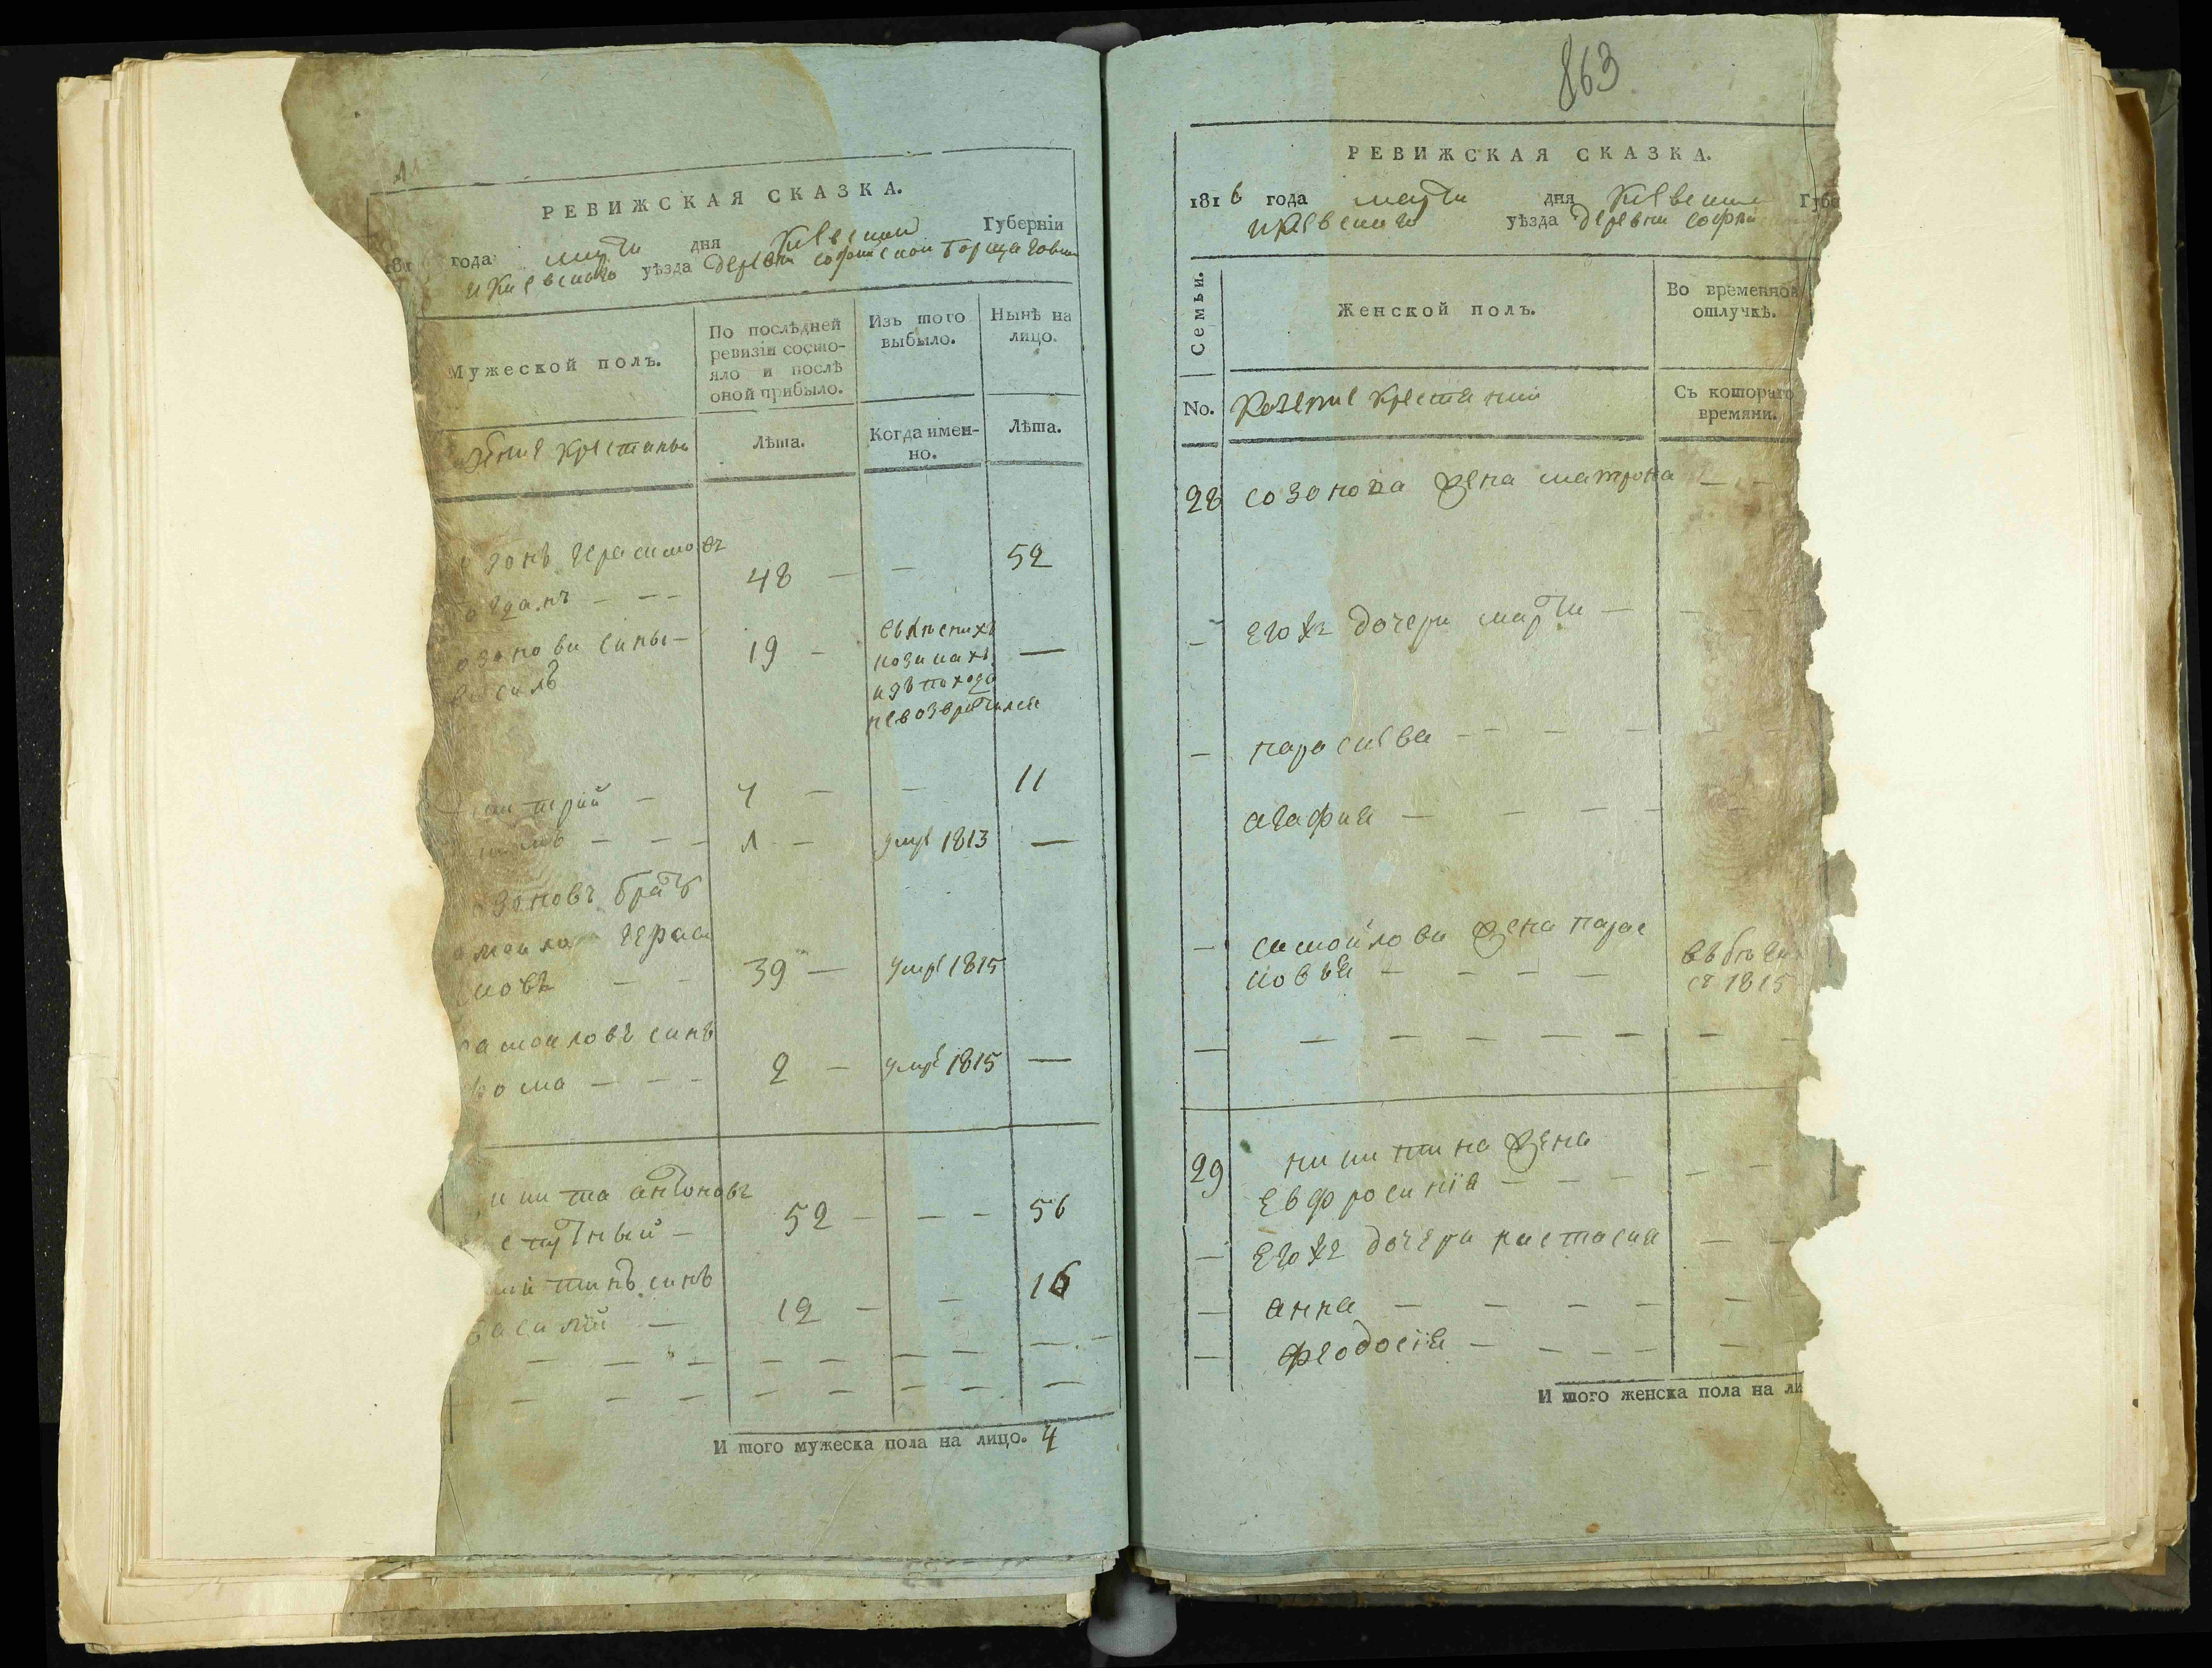 РЕВИЖСКАЯ СКАЗКА.
181 года марта дня Киевской Губерніи
и Киевскаго уѣзда деревни софиской борщаговки
Мужеской полъ.
По послѣдней ревизіи состо-
яло и послѣ
оной прибыло.
Изъ того
выбыло.
Нынѣ на
лицо.
крестяны
Лѣта.
Когда имен-
но.
Лѣта.
озонъ герасимовъ
огданъ — — —
48 — — 52
озонови сины —
василь
19 —
козаках
из похода
невозвратился
—
митрий — 7 — — 11
— — — л — умре 1813 —
зоновъ братъ
амойло гераси
мовъ — — 39 — умре 1815
амойловъ синъ
ома — — — 2 — умре 1815 —
икита антоновъ
52 — — — 56
китинъ синъ
василий — 12 — — 16
И того мужеска пола на лицо. 4
863
РЕВИЖСКАЯ СКАЗКА.
1816 года марта дня Киевской Губе
и Киевскаго уѣзда деревни софий
Семьи.
Женской полъ.
Во временной
отлучкѣ.
No.
Казенние крестянки
Съ котораго
времяни.
28 созонова жена матрона — —
— егожъ дочери марта — — —
— параскева — — — — —
агафия — — — — —
— самойлова жена парас
ковѣя — — — —
въ бегах
съ 1815
— — — — — — — —
29 никитина жена
евфросинія — — — — —
— егожъ дочери настасия — —
— анна — — — — —
— феодосія — — — — —
И того женска пола на ли